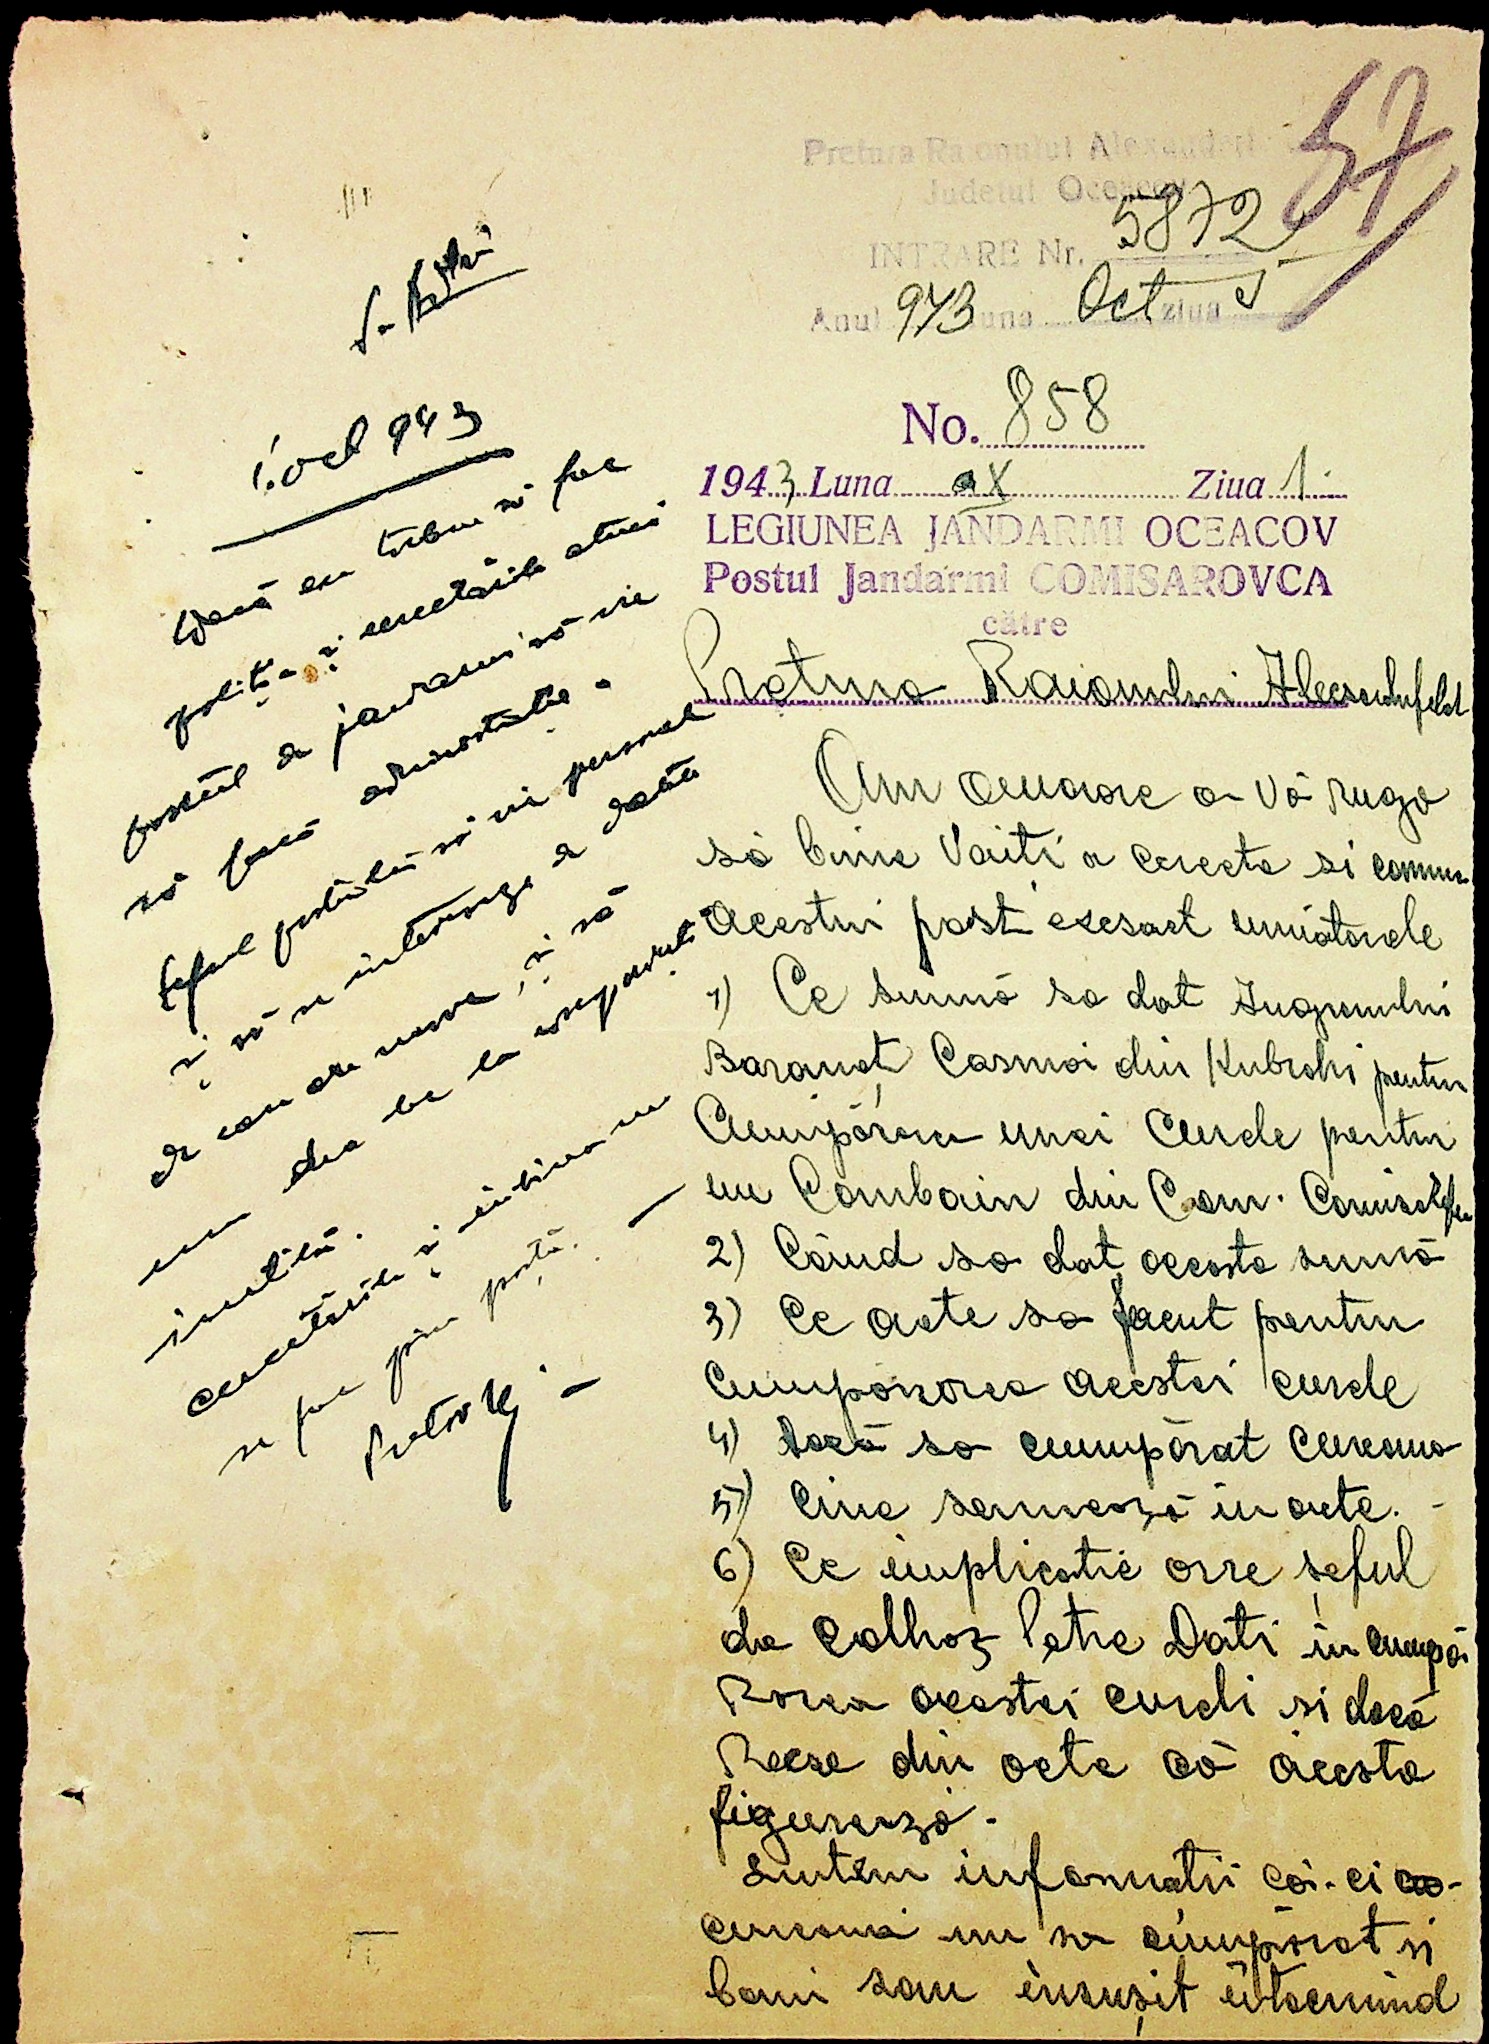 57
Pretura Raionului Alexanderfeld
Judetul Oceacov
INTRARE Nr. 5872
Anul 943 Luna Oct ziua 5
No. 858
1943 Luna X Ziua 1
LEGIUNEA JANDARMI OCEACOV
Postul Jandarmi COMISAROVCA
către
Pretura Raionului Alecsandrfeld
Am onoare a Vă ruga
să bine Voiti a cerceta si comun
acestui post exesact urmatorele
1) Ce sumă sa dat Inspectorului
Baranoț Casmoi din Kubschi pentru
Cumpărarea unei Curele pentru
un Combain din Com. Comisar
2) Când sa dat aceasta sumă
3) Ce acte sa facut pentru
Cumpărarea acestei curele
4) dacă sa cumpărat Cureaua
5) Cine semnează în acte.
6) Ce implicatie are șeful
de Colhoz Petre Dati în cumpă
Rarea acestei cureli si dacă
Reese din acte că acesta
figurează.
Suntem informatii că-ci
cureaua nu sa cumpărat si
bani sau însușit întocmind
5. oct 943
Dacă eu trebue să fac
poliție și cercetările atunci
postul de jandarmi să vie
să facă administrație.
Șeful postului să vie personal
și să se intereseze de datele
de care are nevoe, și să
nu dea be la corespondență
inutilă.
Cercetările și
se fac prin poștă.
Pretor